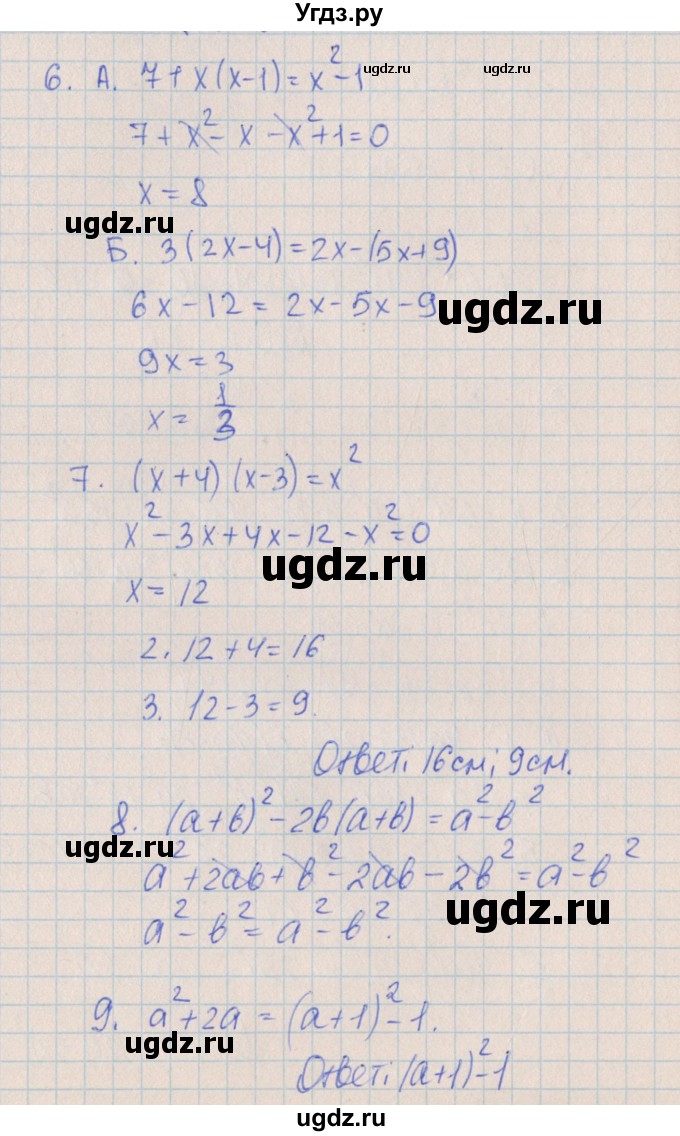 Угдз.ру
6. А. 7+x(x-1)=x²-1
ugdz.ru ugdz.ru
7+x²-x-x²+1=0
x=8
ugdz.ru
Б. 3(2x-4)=2x-(5x+9)
6x-12=2x-5x-9
ugdz.ru
9x=3
x=1/3
7. (x+4)(x-3)=x²
x²-3x+4x-12-x²=0
ugdz.ru
x=12
2. 12+4=16
3. 12-3=9.
Ответ: 16см; 9см.
8. (a+b)²-2b(a+b)=a²-b²
ugdz.ru
a²+2ab+b²-2ab-2b²=a²-b²
ugdz.ru
a²-b²=a²-b².
9. a²+2a=(a+1)²-1.
ugdz.ru
Ответ: (a+1)²-1
ugdz.ru